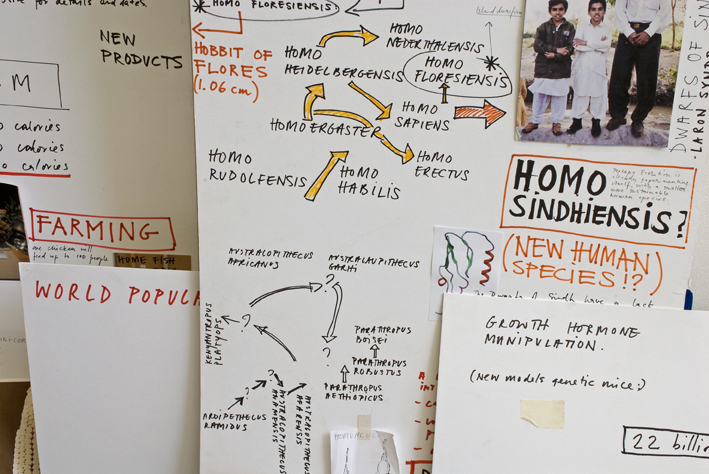 NEW
PRODUCTS
M
calories
calories
calories
FARMING
one chicken will
feed up to 100 people
HOME FISH
WORLD POPULA
HOMO FLORESIENSIS
HOBBIT OF
FLORES
(1.06 cm)
HOMO
HEIDELBERGENSIS
HOMO
NEDERTHALENSIS
HOMO
FLORESIENSIS
HOMO
SAPIENS
HOMO ERGASTER
HOMO
ERECTUS
HOMO
RUDOLFENSIS
HOMO
HABILIS
AUSTRALOPITHECUS
AFRICANUS
AUSTRALAUPITHECUS
GARHI
?
KENYANTROPUS
PLATYOPS
?
?
PARATHROPUS
BOISEI
PARATHROPUS
ROBUSTUS
PARATHROPUS
AETHIOPICUS
?
?
ARDIPETHECUS
RAMIDUS
AUSTRALOPITHECUS
ANAMENSIS
AUSTRALOPITHECUS
AFARENSIS
DWARFS OF SIN
LARON SYNDR
HOMO
SINDHIENSIS?
(NEW HUMAN
SPECIES!?)
The Dwarfs of Sindh have a last
GROWTH HORMONE
MANIPULATION.
(New models genetic mice:)
22 billi